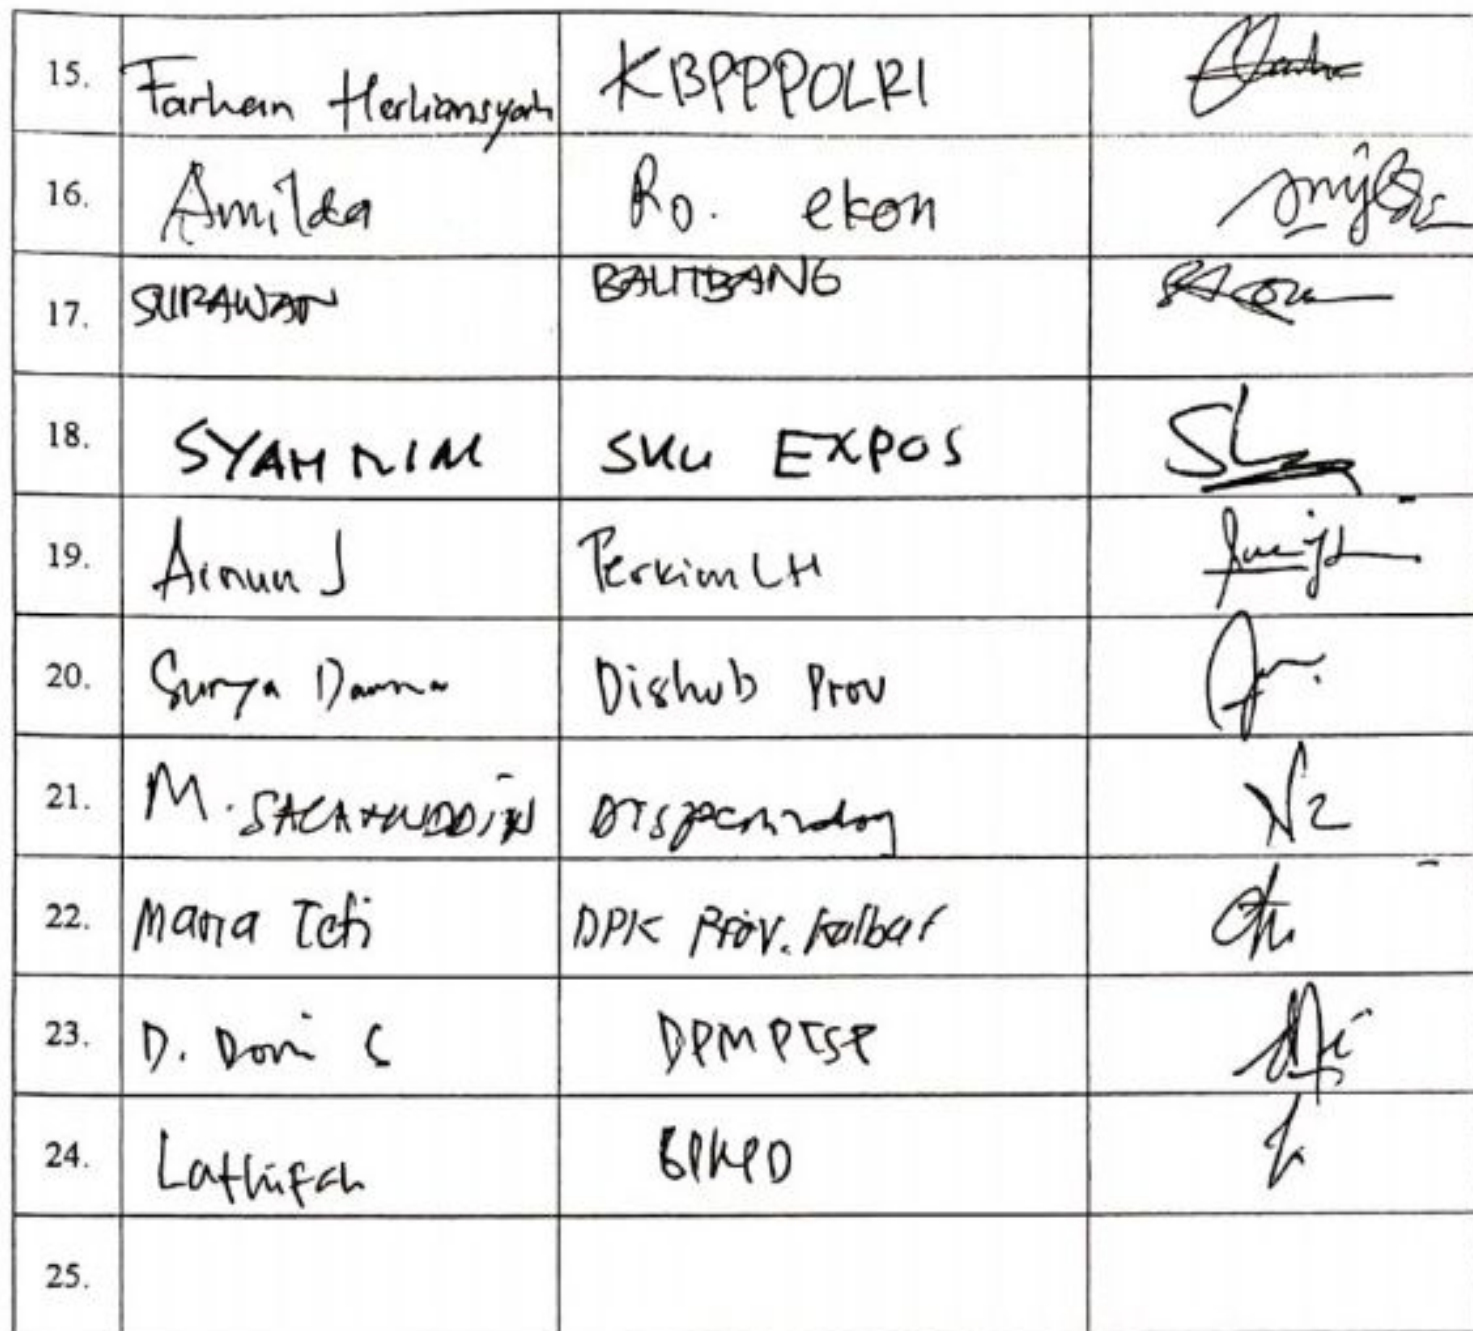 15. Farhan Herliansyah KBPPPOLRI
16. Amilda Ro. ekon
17. SURAWAN BALITBANG
18. SYAHNIM SKU EXPOS
19. Ainun J Perkim LH
20. Surya Darma Dishub Prov
21. M. SALAHUDDIN Disperindag
22. Maria Teti DPK Prov. Kalbar
23. D. Doni S DPMPTSP
24. Lathifah BPKPD
25.